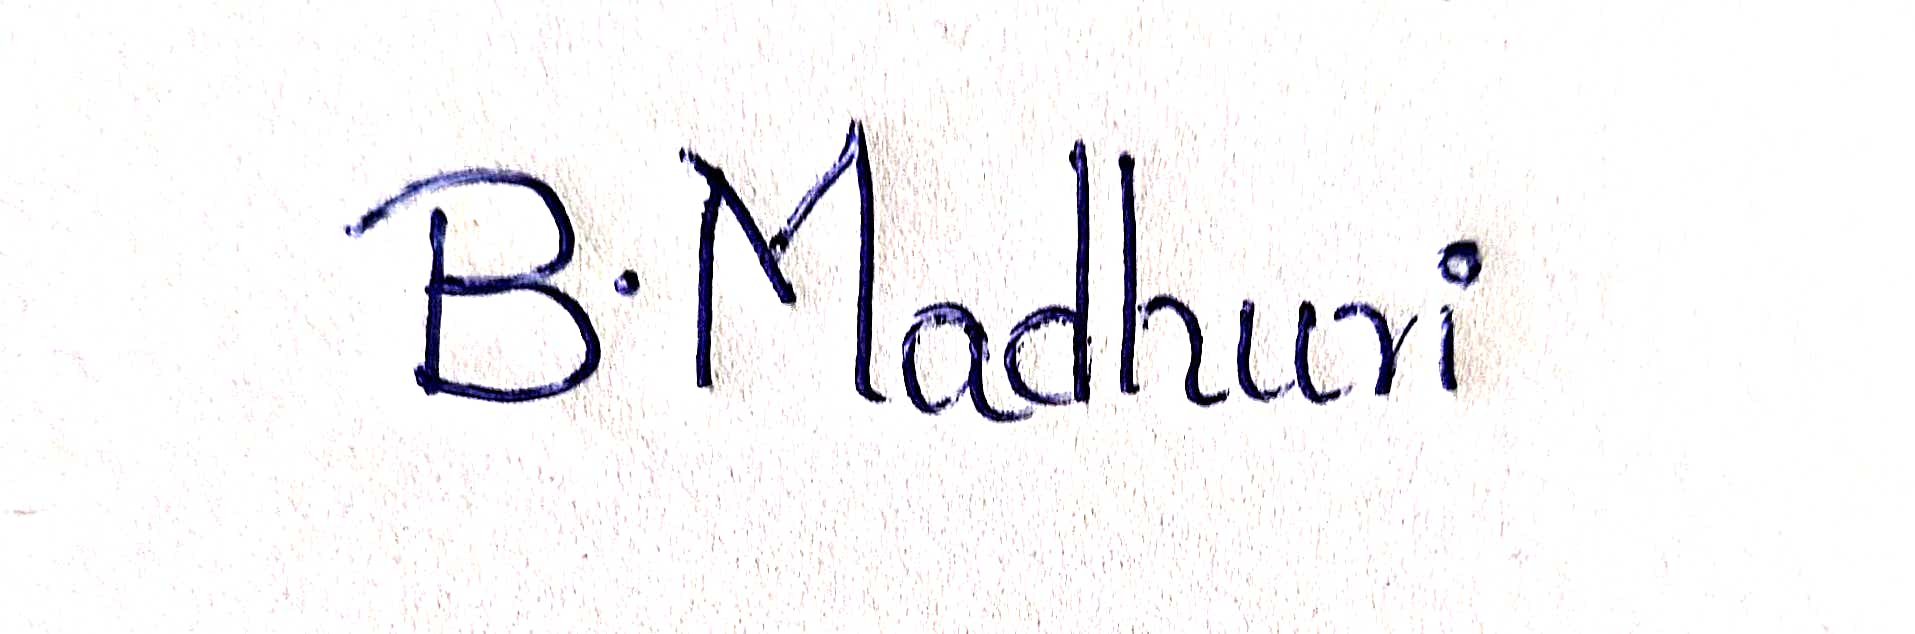 B. Madhuri